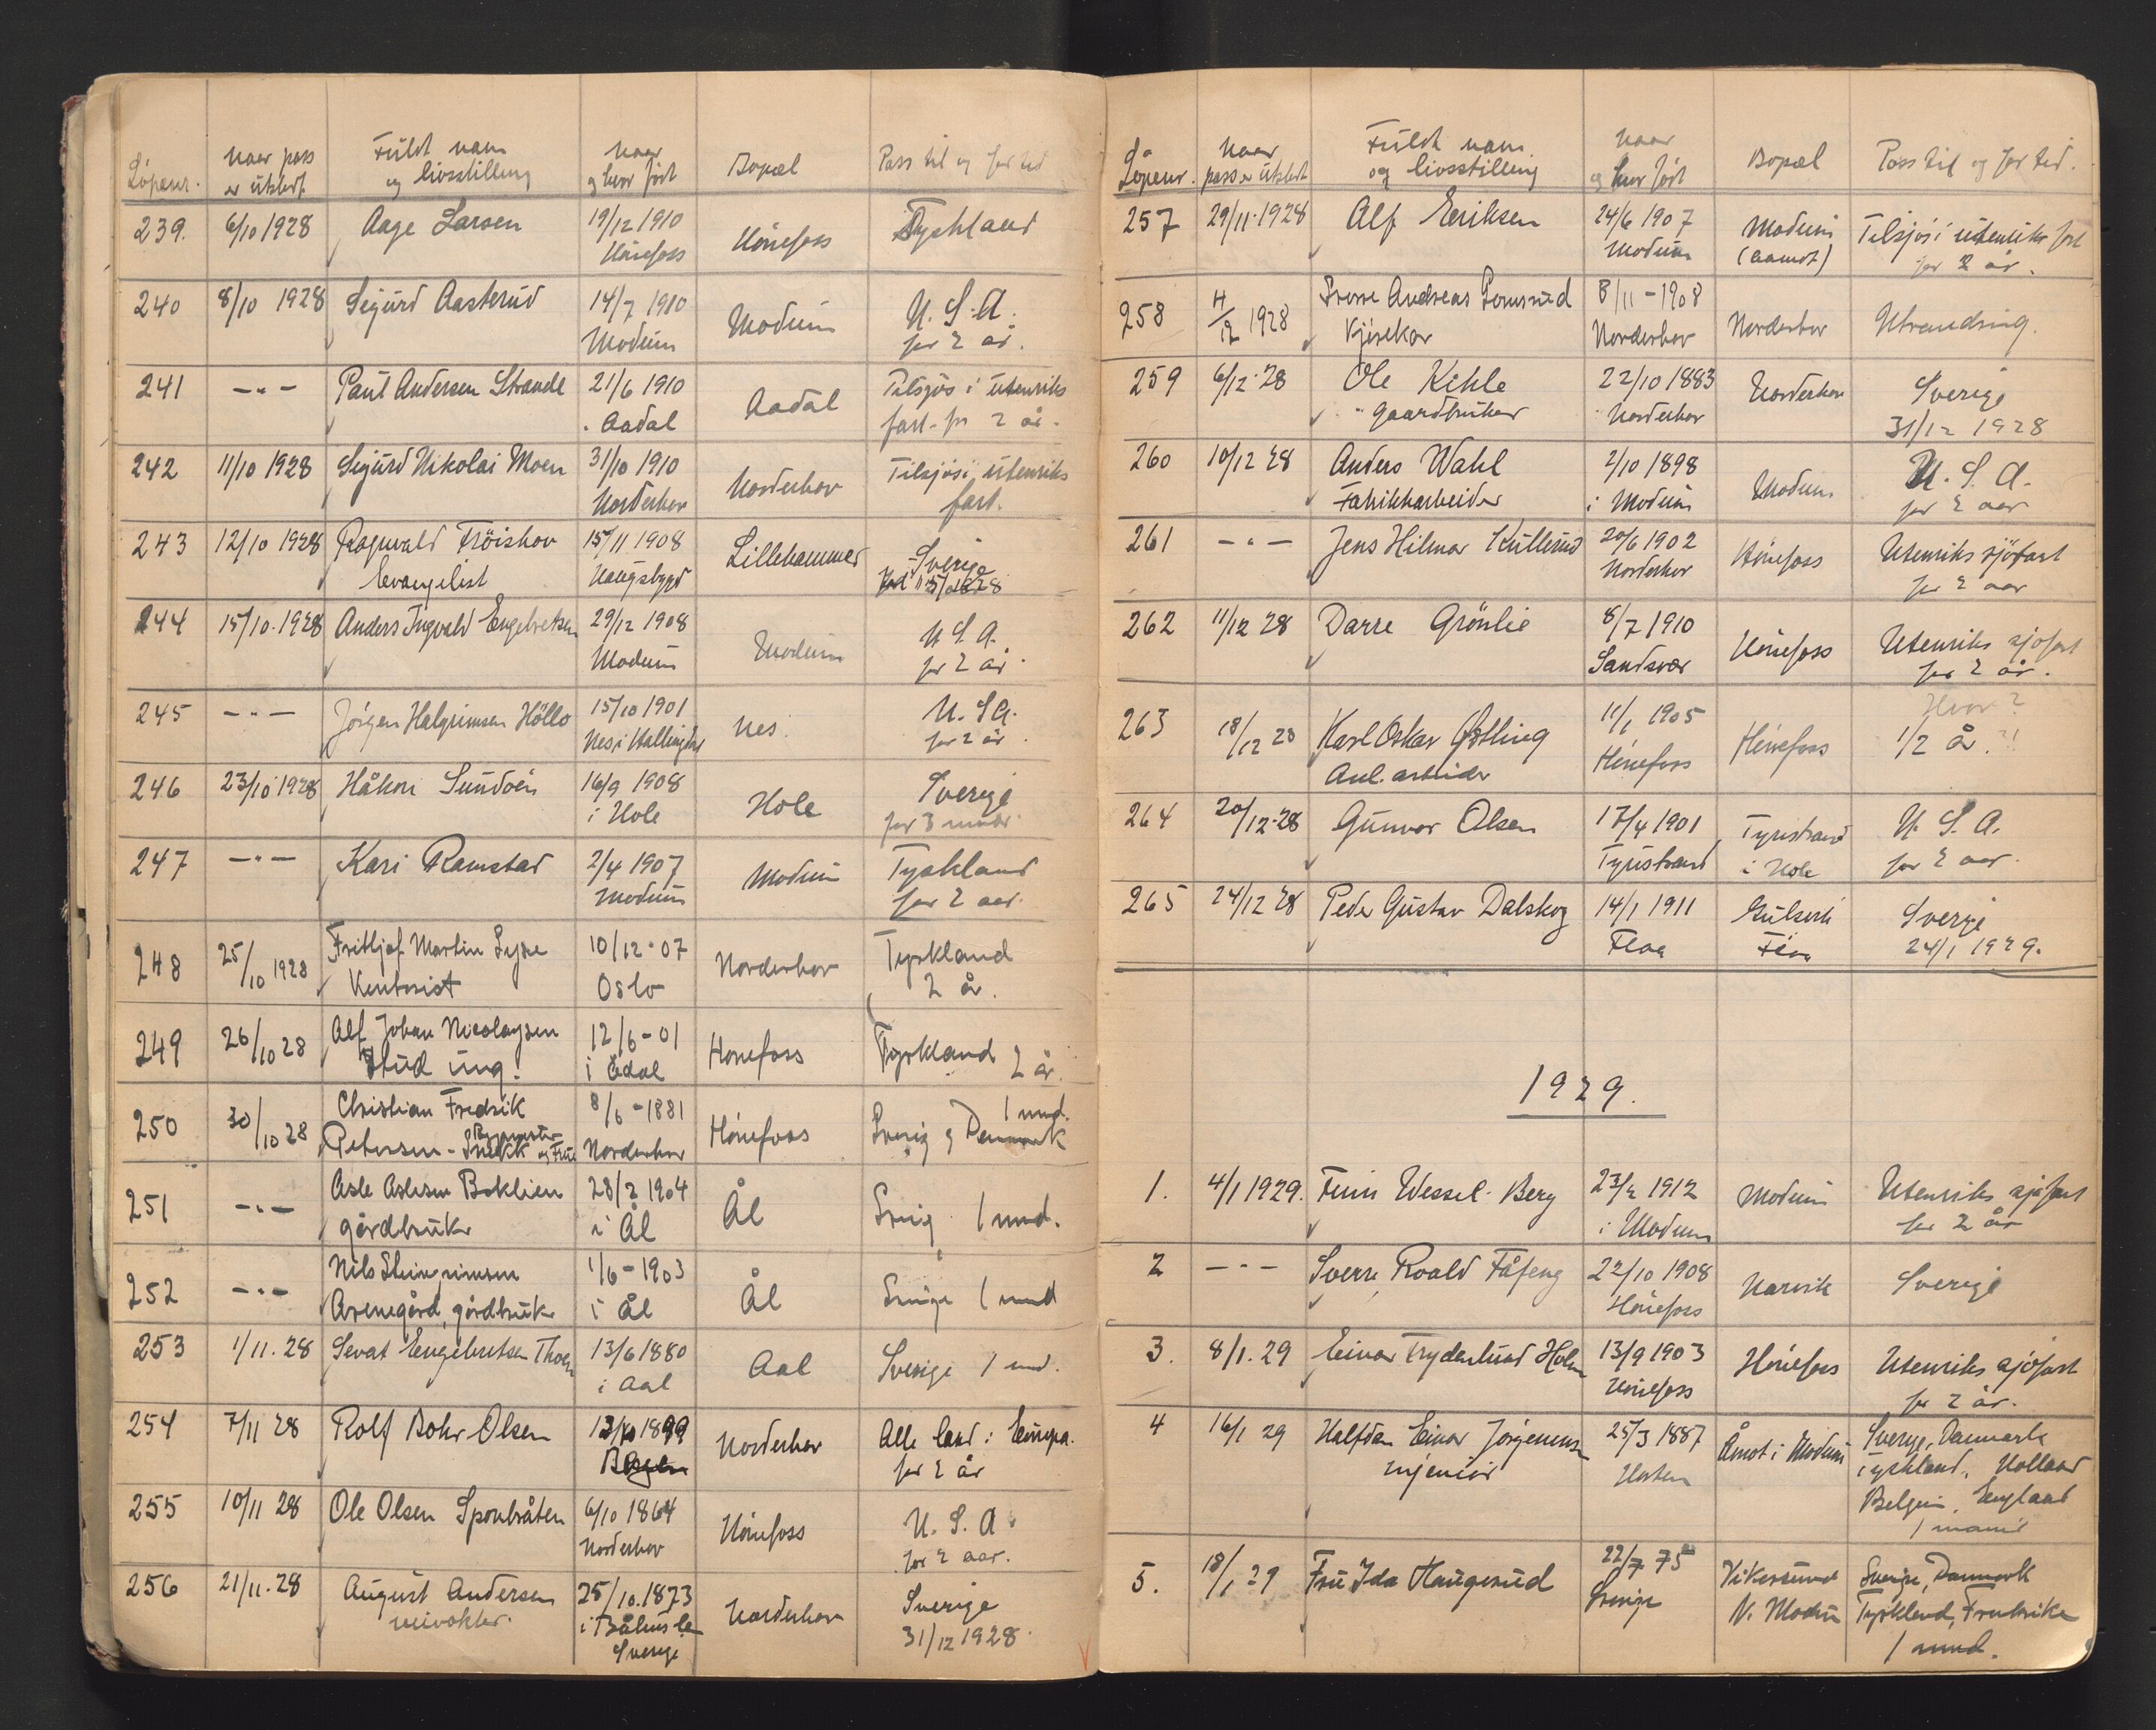 Løpenr. Naar pass er utstedt Fuldt navn og livsstilling Naar og hvor født Bopæl Pass til og for tid
239. 6/10 1928 Aage Larsen 19/12 1910 Hønefoss Hønefoss Tyskland
240 8/10 1928 Sigurd Aasterud 14/7 1910 Modum Modum U.S.A. for 2 år.
241 -"- Paul Andersen Strande 21/6 1910 Aadal Aadal Tilsjøs i utenriks fart for 2 år.
242 11/10 1928 Sigurd Nikolai Moen 31/10 1910 Norderhov Norderhov Tilsjøs i utenriks fart.
243 12/10 1928 Ragnvald Frøishov Evangelist 15/11 1908 Haugsbygd Lillehammer Sverige
244 15/10.1928 Anders Ingvald Engebretsen 29/12 1908 Modum Modum U.S.A. for 2 år.
245 -"- Jørgen Halgrimsen Høllo 15/10 1901 Nes i Hallingdal Nes. U.S.A. for 2 år.
246 23/10 1928 Håkon Sundøen 16/9 1908 i Hole Hole Sverige for 3 mndr.
247 -"- Kari Ramstad 2/4 1907 Modum Modum Tyskland for 2 aar.
248 25/10 1928 Fritjof Martin Kontorist 10/12-07 Oslo Norderhov Tyskland 2 år.
249 26/10 28 Alf Johan Nicolaysen Stud ing. 12/6-01 i Ådal Hønefoss Tyskland 2 år.
250 30/10 28 Christian Fredrik Petersen - og Frue 8/6-1881 Norderhov Hønefoss Sverig og Denmark 1 mnd.
251 -"- Asle Aslesen Boklien gårdbruker 28/2 1904 i Ål Ål Sverig 1 mnd.
252 -"- Nils Steingrimsen gårdbruker 1/6-1903 i Ål Ål Sverige 1 mnd
253 1/11.28 Sevat Engebretsen Thoen 13/6 1880 i Aal Aal Sverige 1 md.
254 7/11 28 Rolf Bohr Olsen 13/10 1899 Bergen Norderhov Alle land i Europa. for 2 år
255 10/11 28 Ole Olsen Sponbråten 6/10 1864 Norderhov Hønefoss U.S.A. for 2 aar.
256 21/11.28 August Andersen veivokter. 25/10.1873 i Båhuslen Sverige Norderhov Sverige 31/12 1928.
Løpenr. Naar pass er utstedt Fuldt navn og livsstilling Naar og hvor født Bopæl Pass til og for tid.
257 29/11.1928 Alf Eriksen 24/6 1907 Modum Modum (Aamot) Tilsjøs i utenriks fart for 2 år.
258 4/12 1928 Sverre Andreas Gomsrud Kjørekar 8/11-1908 Norderhov Norderhov Utvandring.
259 6/12.28 Ole Kihle gaardbruker 22/10 1883 Norderhov Norderhov Sverige 31/12 1928
260 10/12 28 Anders Wahl Fabrikkarbeider 2/10 1898 i Modum Modum U.S.A. for 2 aar
261 -"- Jens Hilmar Kullerud 20/6 1902 Norderhov Hønefoss Utenriks sjøfart for 2 aar
262 11/12 28 Darre Grønlie 8/7 1910 Sandsvær Hønefoss Utenriks sjøfart for 2 år.
263 18/12 28 Karl Oskar Østling Anl. arbeider 11/1 1905 Hønefoss Hønefoss Hvor? 1/2 år.?!
264 20/12-28 Gunvor Olsen 17/4 1901 Tyristrand Tyristrand i Hole U.S.A. for 2 aar.
265 24/12 28 Peder Gustav Dalskog 14/1 1911 Flaa Gulsvik Flaa Sverige 24/1 1929.
1929.
1. 4/1 1929. Finn Wessel-Berg 23/2 1912 i Modum Modum Utenriks sjøfart for 2 år
2 -"- Sverre Roald Fåfeng 22/10 1908 Hønefoss Narvik Sverige
3. 8/1.29 Einar Frydenlund Holm 13/9 1903 Hønefoss Hønefoss Utenriks sjøfart for 2 år.
4 16/1 29 Halfdan Einar Jørgensen Injeniør 25/3 1887 Horten Åmot i Modum Sverge, Danmark Tyskland, Holland Belgien, England 1 maane
5. 18/1 29 Fru Ida Haugerud 22/7 75 Sverige Vikersund N. Modum Sverige, Danmark Tyskland, Frankrike 1 mnd.